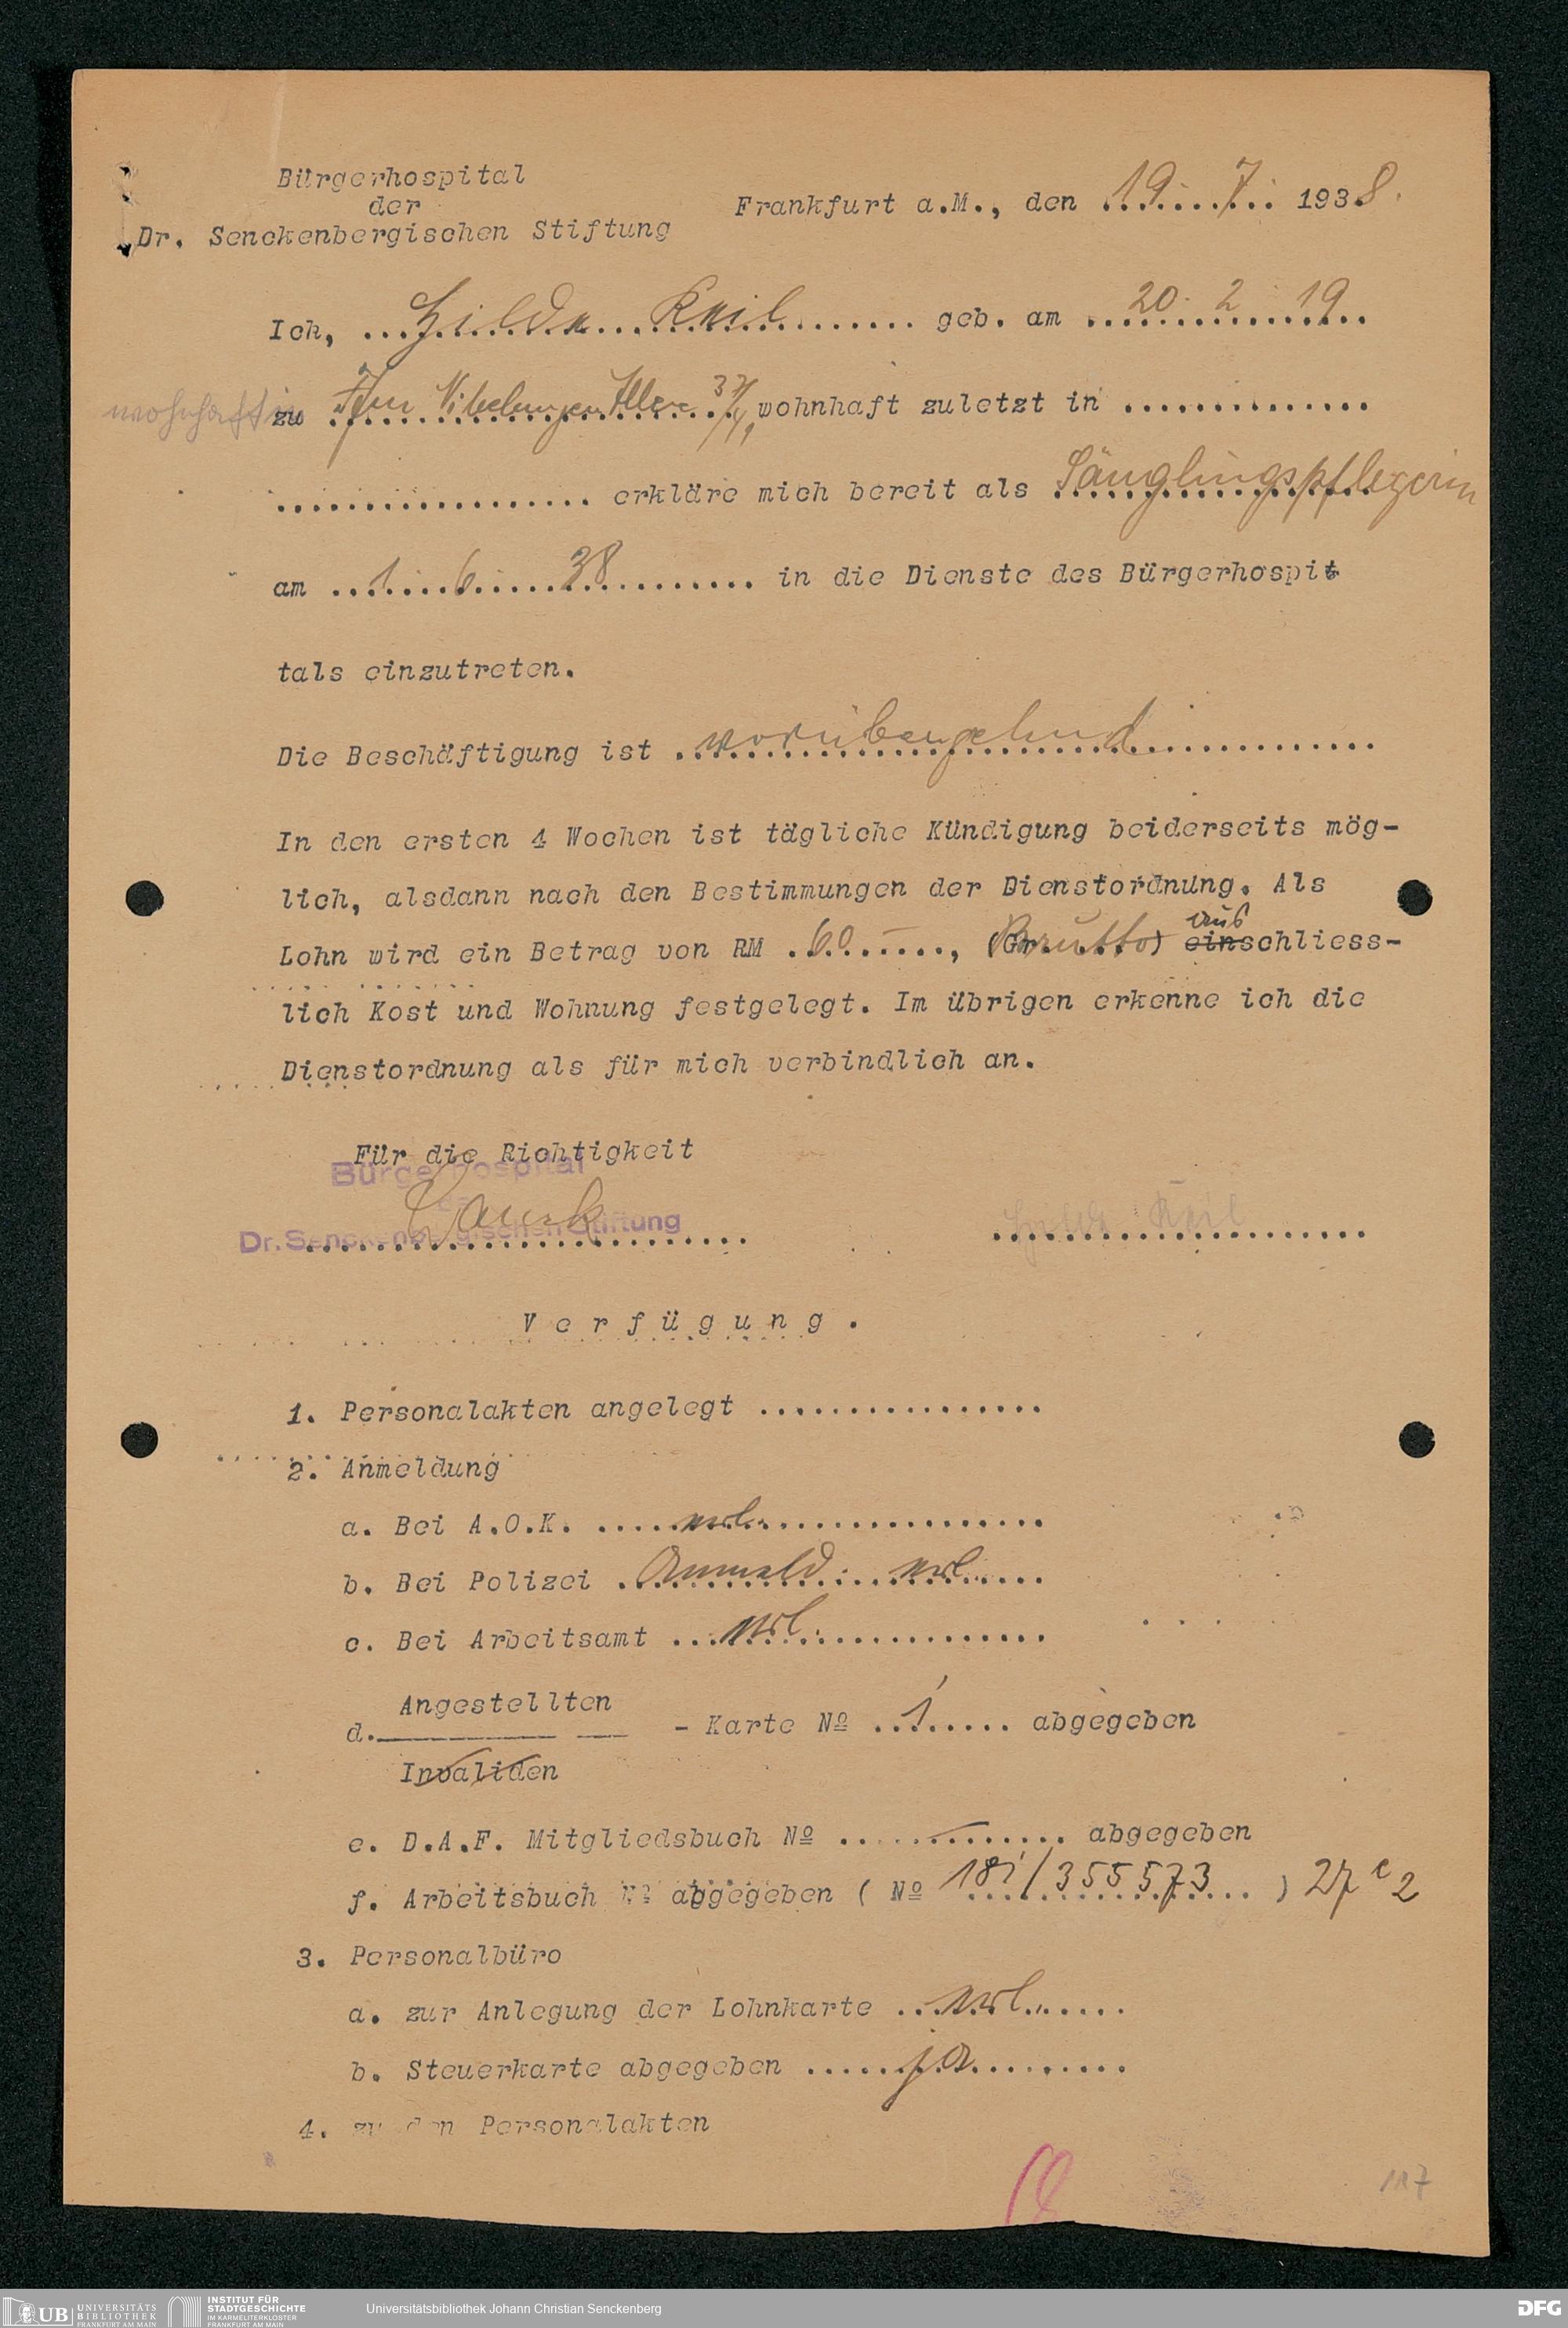 Bürgerhospital
der
Dr. Senckenbergischen Stiftung
Frankfurt a.M., den 19. 7. 1938.
Ich, Hilde Keil geb. am 20. 2. 19
wohnhaft zu Nibelungen Allee 37/ , wohnhaft zuletzt in ..............
.................. erkläre mich bereit als Säuglingspflegerin
am 1. 6. 38 in die Dienste des Bürgerhospit
tals einzutreten.
Die Beschäftigung ist vorübergehend
In den ersten 4 Wochen ist tägliche Kündigung beiderseits mög-
lich, alsdann nach den Bestimmungen der Dienstordnung. Als
Lohn wird ein Betrag von RM 60.—, (Brutto) ausschliess-
lich Kost und Wohnung festgelegt. Im übrigen erkenne ich die
Dienstordnung als für mich verbindlich an.
Für die Richtigkeit
Bürgerhospital
Dr. Senckenbergischen Stiftung
Hilde Keil
Verfügung.
1. Personalakten angelegt ................
2. Anmeldung
a. Bei A.O.K. erl.
b. Bei Polizei Anmeld. erl.
c. Bei Arbeitsamt erl.
Angestellten
d. - Karte No 1 abgegeben
Invaliden
e. D.A.F. Mitgliedsbuch No ............. abgegeben
f. Arbeitsbuch No abgegeben ( No 181/355573 ) 27 c 2
3. Personalbüro
a. zur Anlegung der Lohnkarte erl.
b. Steuerkarte abgegeben ja
4. zu den Personalakten
117
UB UNIVERSITÄTS
BIBLIOTHEK
FRANKFURT AM MAIN
INSTITUT FÜR
STADTGESCHICHTE
IM KARMELITERKLOSTER
FRANKFURT AM MAIN
Universitätsbibliothek Johann Christian Senckenberg
DFG